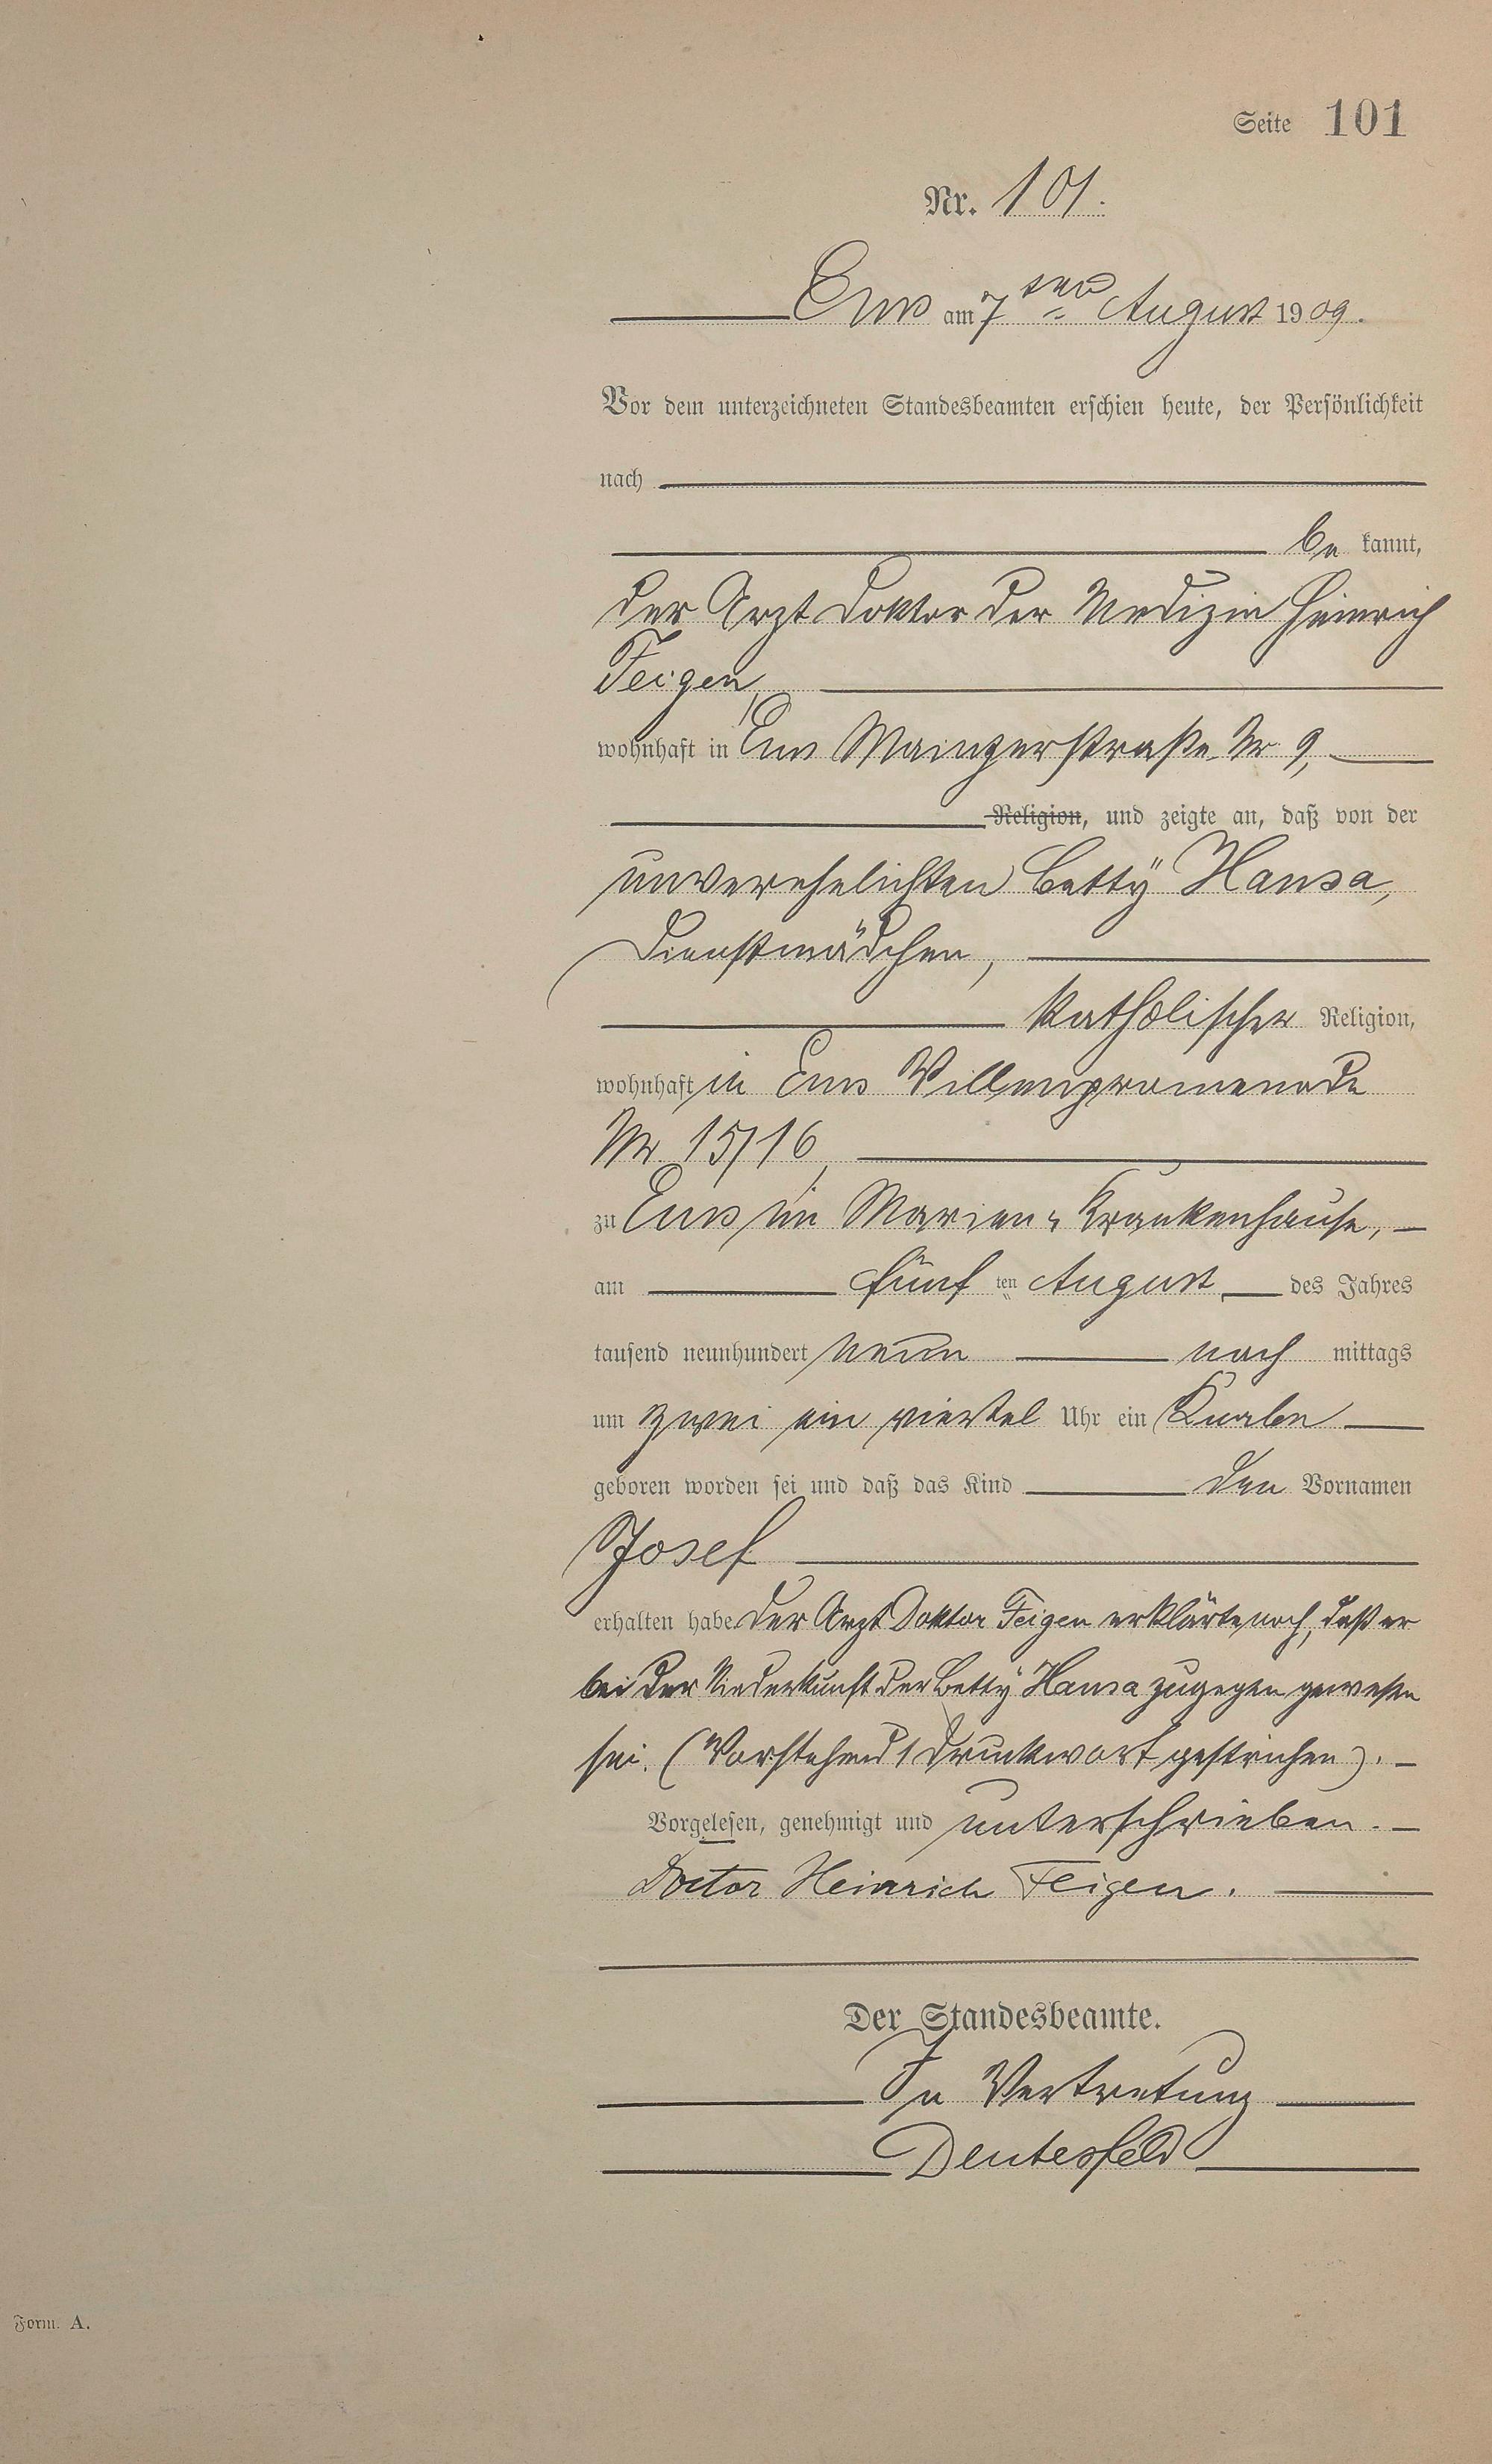 Seite 101
Nr. 101.
Ems am 7ten August 1909.
Vor dem unterzeichneten Standesbeamten erschien heute, der Persönlichkeit
nach
be kannt,
der Arzt Doktor der Medizin Heinrich
Feigen,
wohnhaft in Ems Mainzerstraße Nr 9,
Religion, und zeigte an, daß von der
unverehelichten Betty Hansa,
Dienstmädchen,
katholischer Religion,
wohnhaft in Ems Villenpromenade
Nr. 15/16,
zu Ems im Marien-Krankenhause,
am fünften August des Jahres
tausend neunhundert neun nach mittags
um zwei ein viertel Uhr ein Knabe
geboren worden sei und daß das Kind den Vornamen
Josef
erhalten habe. Der Arzt Doktor Feigen erklärte noch, daß er
bei der Niederkunft der Betty Hansa zugegen gewesen
sei. (Vorstehend 1 Druckwort gestrichen).
Vorgelesen, genehmigt und unterschrieben.
Doctor Heinrich Feigen.
Der Standesbeamte.
In Vertretung
Deutesfeld
Form. A.